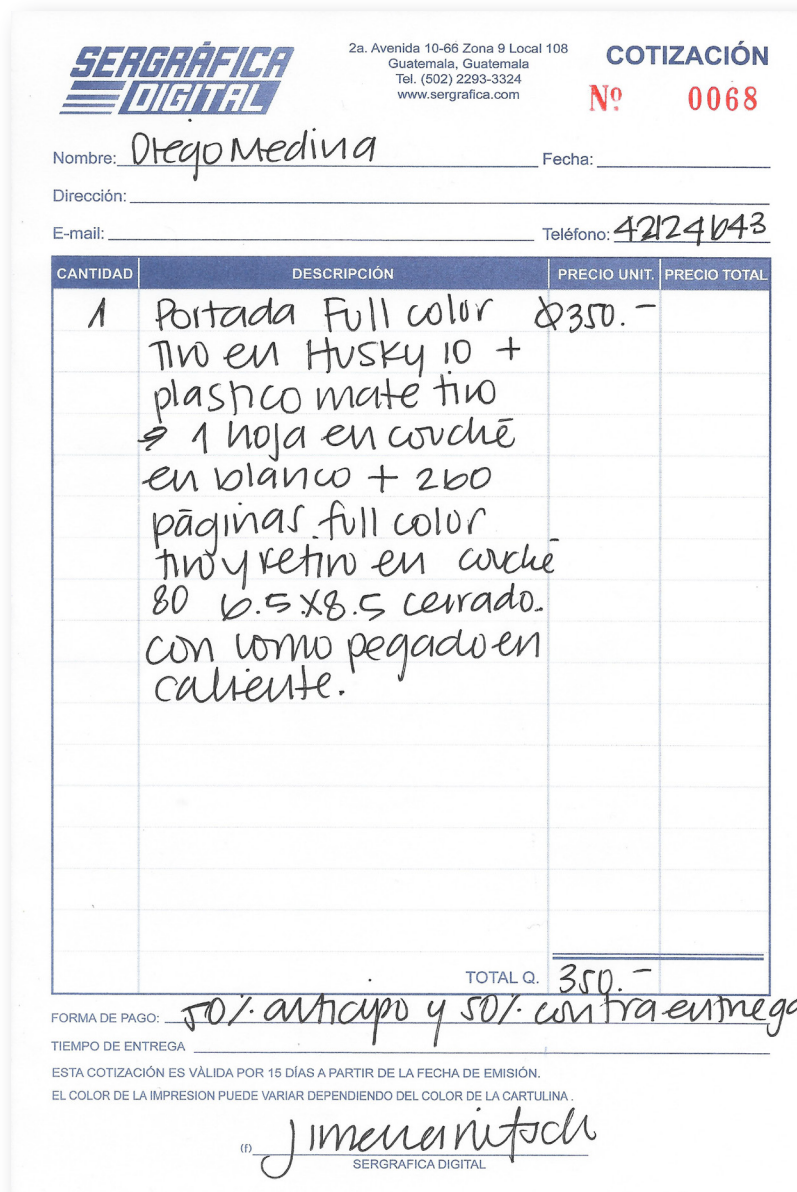 SERGRÁFICA
DIGITAL
2a. Avenida 10-66 Zona 9 Local 108
Guatemala, Guatemala
Tel. (502) 2293-3324
www.sergrafica.com
COTIZACIÓN
Nº 0068
Nombre: Diego Medina Fecha:
Dirección:
E-mail: Teléfono: 42124643
CANTIDAD DESCRIPCIÓN PRECIO UNIT. PRECIO TOTAL
1 Portada Full color Q350.-
tiro en Husky 10 +
plastico mate tiro
1 hoja en couché
en blanco + 260
páginas full color
tiro y retiro en couché
80 6.5X8.5 cerrado.
con lomo pegado en
caliente.
TOTAL Q. 350.-
FORMA DE PAGO: 50% anticipo y 50% contra entrega
TIEMPO DE ENTREGA
ESTA COTIZACIÓN ES VÀLIDA POR 15 DÍAS A PARTIR DE LA FECHA DE EMISIÓN.
EL COLOR DE LA IMPRESION PUEDE VARIAR DEPENDIENDO DEL COLOR DE LA CARTULINA.
(f) Jimena Nitsch
SERGRAFICA DIGITAL